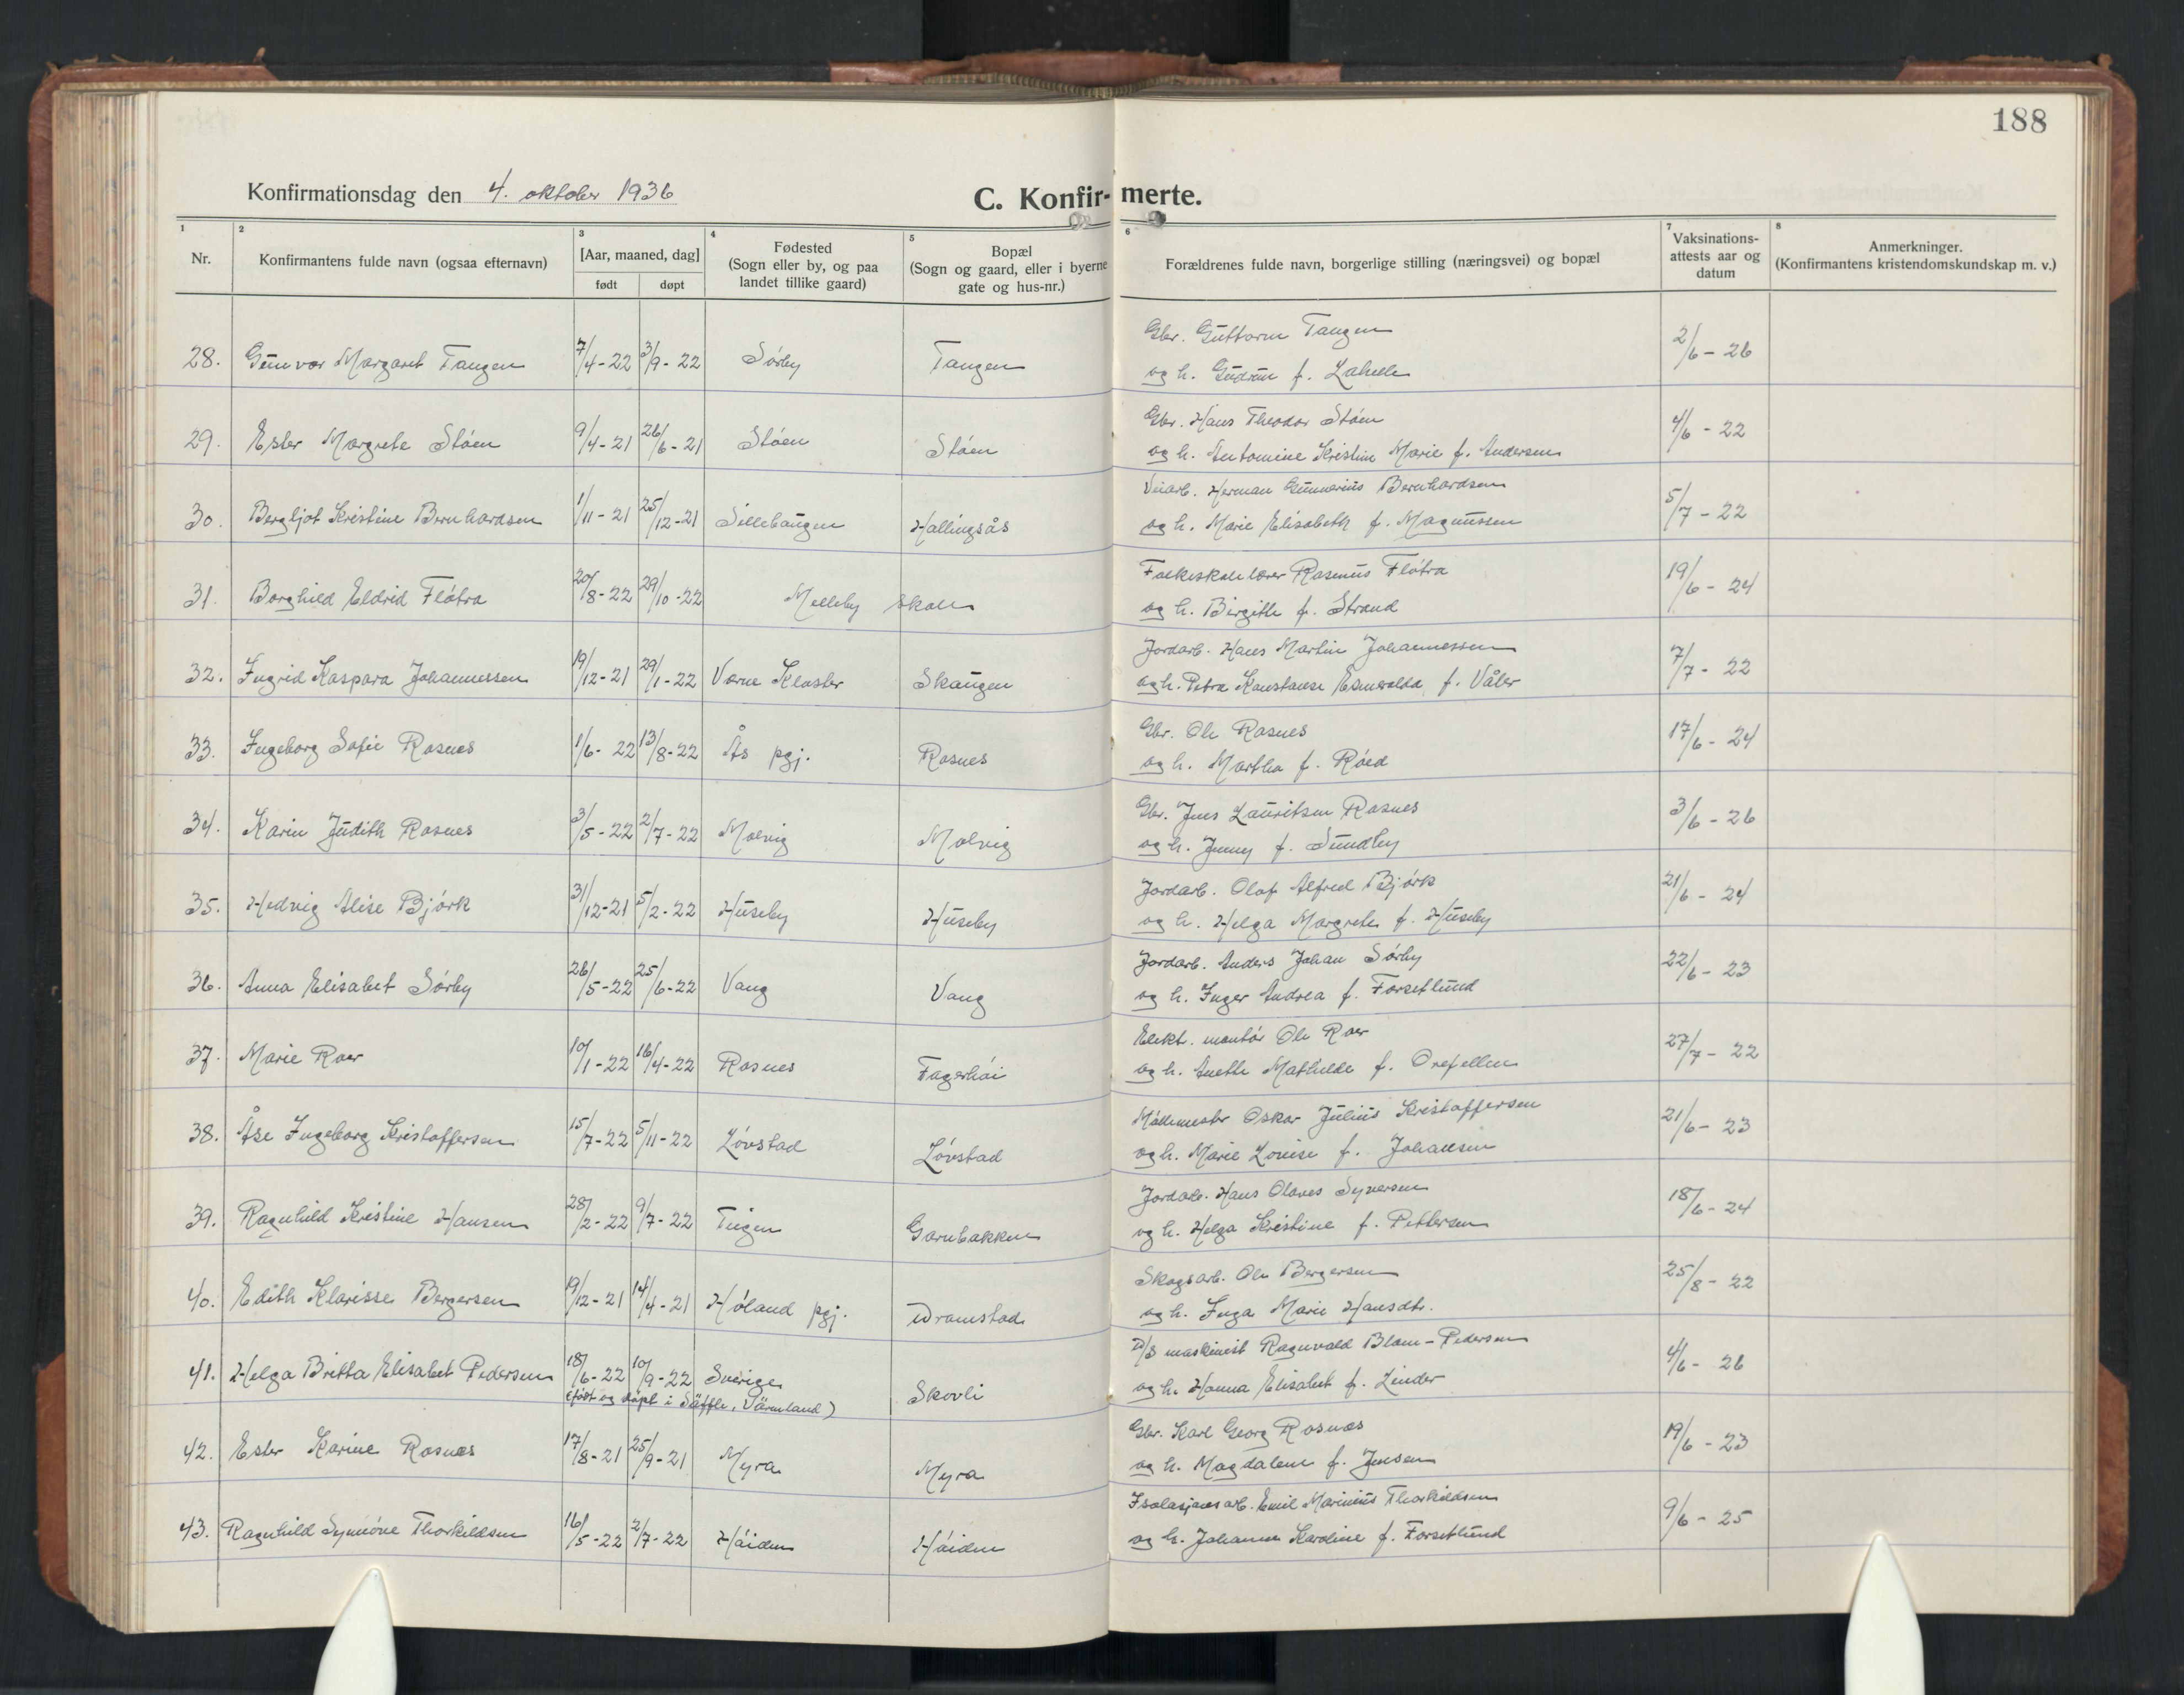 188
Konfirmationsdag den 4. oktober 1936
C. Konfirmerte.
1 2 3 4 5 6 7 8
Nr.
Konfirmantens fulde navn (ogsaa efternavn)
[Aar, maaned, dag]
født døpt
Fødested
(Sogn eller by, og paa
landet tillike gaard)
Bopæl
(Sogn og gaard, eller i byerne
gate og hus-nr.)
Forældrenes fulde navn, borgerlige stilling (næringsvei) og bopæl
Vaksinations-
attests aar og
datum
Anmerkninger.
(Konfirmantens kristendomskundskap m. v.)
Gbr. Guttorm Tangen
28. Gunvor Margaret Tangen 7/4-22 3/9-22 Sørby Tangen og h. Gudrun f. 2/6-26
Gbr. Hans Theodor Støen
29. Ester Margrete Støen 9/4-21 26/6-21 Støen Støen og h. Antomine Kristine Marie f. Andersen 4/6-22
Veiarb. Herman Gunnarius Bernhardsen
30. Bergljot Kristine Bernhardsen 1/11-21 25/12-21 Sillebaugen Hallingsås og h. Marie Elisabeth f. Magnussen 5/7-22
Folkeskolelærer Rasmus Fløtra
31. Borghild Eldrid Fløtra 20/8-22 29/10-22 Melleby skole og h. Birgithe f. Strand 19/6-24
Jordarb. Hans Martin Johannessen
32. Ingrid Kaspara Johannessen 19/12-21 29/1-22 Værne Kloster Skaugen og h. Petra Konstanse Esmeralda f. Våler 7/7-22
Gbr. Ole Rosnes
33. Ingeborg Sofie Rosnes 1/6-22 13/8-22 Ås pgj. Rosnes og h. Martha f. Røed 17/6-24
Gbr. Jens Lauritsen Rosnes
34. Karin Judith Rosnes 3/5-22 2/7-22 Molvig Molvig og h. Jenny f. Sundby 3/6-26
Jordarb. Olaf Alfred Bjørk
35. Hedvig Alise Bjørk 31/12-21 5/2-22 Huseby Huseby og h. Helga Margrete f. Huseby 21/6-24
Jordarb. Anders Johan Sørby
36. Anna Elisabet Sørby 26/5-22 25/6-22 Vang Vang og h. Inger Andrea f. Forsetlund 22/6-23
Elekt. montør Ole Roer
37. Marie Roer 10/1-22 16/4-22 Rosnes Fagerhøi og h. Anethe Mathilde f. Orefellen 27/7-22
Møllemester Oskar Julius Kristoffersen
38. Åse Ingeborg Kristoffersen 15/7-22 5/11-22 Løvstad Løvstad og h. Marie Lovise f. Johansen 21/6-23
Jordarb. Hans Olaves Syversen
39. Ragnhild Kristine Hansen 28/2-22 9/7-22 Tiigen Garnbakken og h. Helga Kristine f. Pettersen 18/6-24
Skogsarb. Ole Bergersen
40. Edith Klarisse Bergersen 19/12-21 14/4-21 Høland pgj. Dramstad og h. Inga Marie Hansdtr. 25/8-22
D/S maskinist Ragnvald Blom-Pedersen
41. Helga Britta Elisabet Pedersen 18/6-22 10/9-22 Sverige Skovli og h. Hanna Elisabet f. Linder 4/6-26
(født og døpt i Säffle, Värmland)
Gbr. Karl Georg Rosnes
42. Ester Karine Rosnes 17/8-21 25/9-21 Myra Myra og h. Magdalene f. Jensen 19/6-23
Isolasjonsarb. Emil Marinius Thorkildsen
43. Ragnhild Synnøve Thorkildsen 16/5-22 2/7-22 Høiden Høiden og h. Johanne Karoline f. Forsetlund 9/6-25